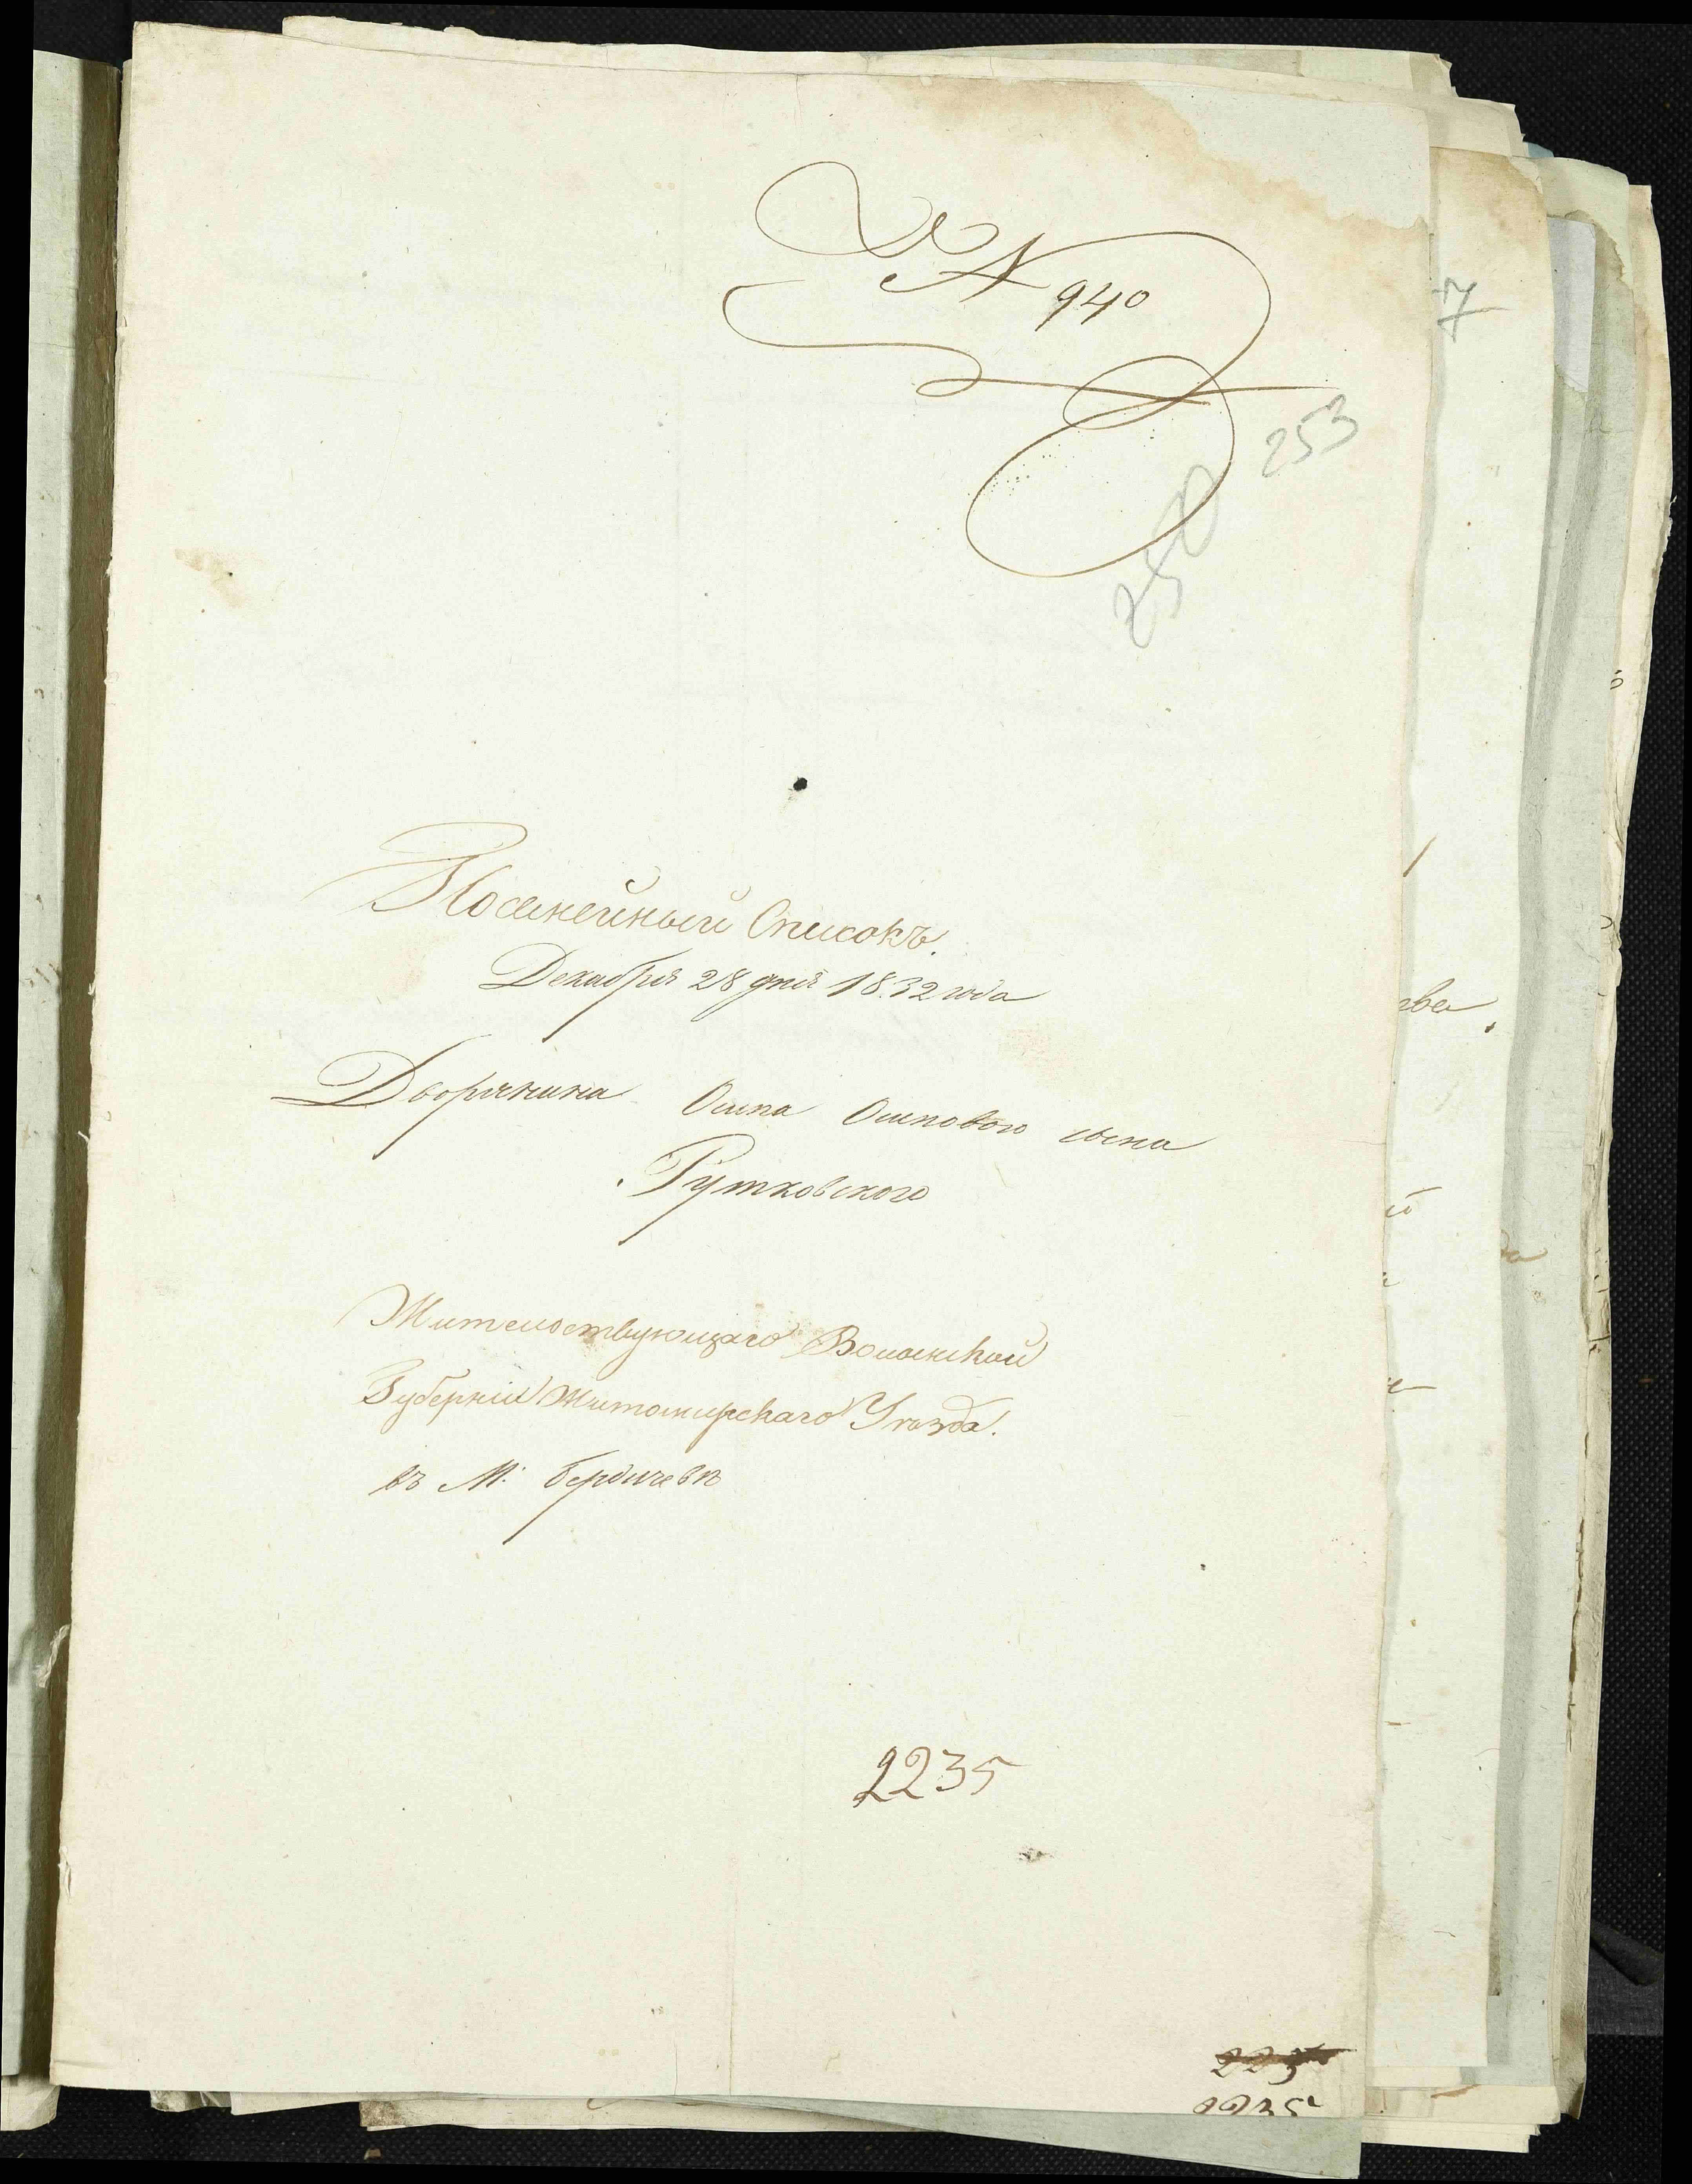 № 940
253
250
Посемейный Списокъ.
Декабря 28 дня 1832 года
Дворянина Осипа Осипового сына
Рутковского
Жительствующаго Волынской
Губерніи Житомирскаго Уѣзда.
въ М: Бердичевѣ
2235